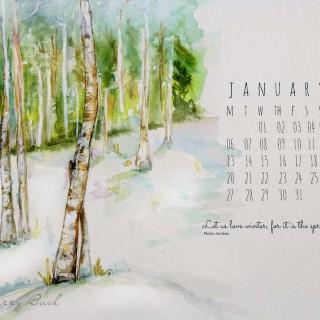 JANUARY
M T W TH F S S
01 02 03 04
06 07 08 09 10 11
13 14 15 16 17 18
20 21 22 23 24 25
27 28 29 30 31
Let us love winter, for it is the
Pietro Aretino
Bush